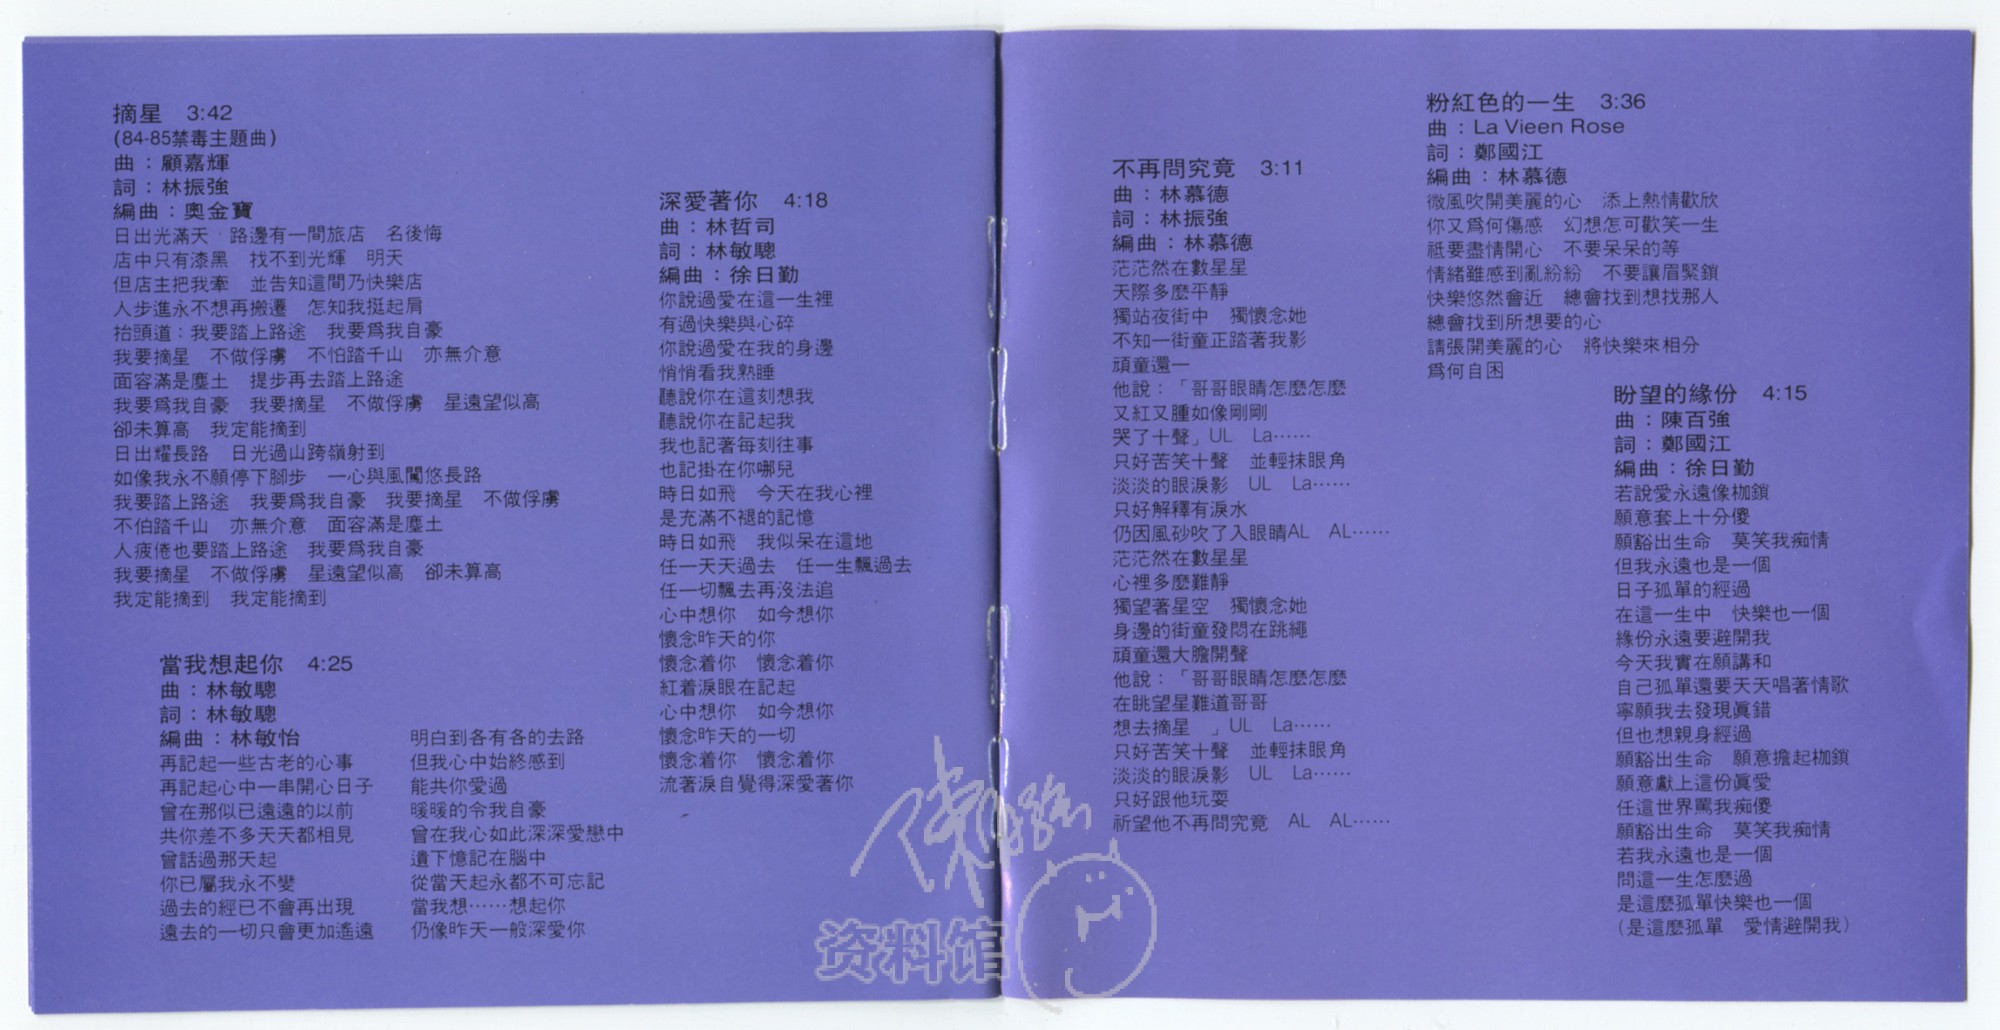 摘星　3:42
(84-85禁毒主題曲)
曲：顧嘉輝
詞：林振強
編曲：奧金寶
日出光滿天　路邊有一間旅店　名後悔
店中只有漆黑　找不到光輝　明天
但店主把我牽　並告知這間乃快樂店
人步進永不想再搬遷　怎知我挺起肩
抬頭道：我要踏上路途　我要爲我自豪
我要摘星　不做俘虜　不怕踏千山　亦無介意
面容滿是塵土　提步再去踏上路途
我要爲我自豪　我要摘星　不做俘虜　星遠望似高
卻未算高　我定能摘到
日出耀長路　日光過山跨嶺射到
如像我永不願停下腳步　一心與風闖悠長路
我要踏上路途　我要爲我自豪　我要摘星　不做俘虜
不怕踏千山　亦無介意　面容滿是塵土
人疲倦也要踏上路途　我要爲我自豪
我要摘星　不做俘虜　星遠望似高　卻未算高
我定能摘到　我定能摘到
當我想起你　4:25
曲：林敏驄
詞：林敏驄
編曲：林敏怡
再記起一些古老的心事
再記起心中一串開心日子
曾在那似已遠遠的以前
共你差不多天天都相見
曾話過那天起
你已屬我永不變
過去的經已不會再出現
遠去的一切只會更加遙遠
明白到各有各的去路
但我心中始終感到
能共你愛過
暖暖的令我自豪
曾在我心如此深深愛戀中
遺下憶記在腦中
從當天起永都不可忘記
當我想……想起你
仍像昨天一般深愛你
深愛著你　4:18
曲：林哲司
詞：林敏驄
編曲：徐日勤
你說過愛在這一生裡
有過快樂與心碎
你說過愛在我的身邊
悄悄看我熟睡
聽說你在這刻想我
聽說你在記起我
我也記著每刻往事
也記掛在你哪兒
時日如飛　今天在我心裡
是充滿不褪的記憶
時日如飛　我似呆在這地
任一天天過去　任一生飄過去
任一切飄去再沒法追
心中想你　如今想你
懷念昨天的你
懷念着你　懷念着你
紅着淚眼在記起
心中想你　如今想你
懷念昨天的一切
懷念着你　懷念着你
流著淚自覺得深愛著你
不再問究竟　3:11
曲：林慕德
詞：林振強
編曲：林慕德
茫茫然在數星星
天際多麼平靜
獨站夜街中　獨懷念她
不知一街童正踏著我影
頑童還一
他說：「哥哥眼睛怎麼怎麼
又紅又腫如像剛剛
哭了十聲」UL　La……
只好苦笑十聲　並輕抹眼角
淡淡的眼淚影　UL　La……
只好解釋有淚水
仍因風砂吹了入眼睛AL　AL……
茫茫然在數星星
心裡多麼難靜
獨望著星空　獨懷念她
身邊的街童發悶在跳繩
頑童還大膽開聲
他說：「哥哥眼睛怎麼怎麼
在眺望星難道哥哥
想去摘星　」UL　La……
只好苦笑十聲　並輕抹眼角
淡淡的眼淚影　UL　La……
只好跟他玩耍
祈望他不再問究竟　AL　AL……
粉紅色的一生　3:36
曲：La Vieen Rose
詞：鄭國江
編曲：林慕德
微風吹開美麗的心　添上熱情歡欣
你又爲何傷感　幻想怎可歡笑一生
祗要盡情開心　不要呆呆的等
情緒雖感到亂紛紛　不要讓眉緊鎖
快樂悠然會近　總會找到想找那人
總會找到所想要的心
請張開美麗的心　將快樂來相分
爲何自困
盼望的緣份　4:15
曲：陳百強
詞：鄭國江
編曲：徐日勤
若說愛永遠像枷鎖
願意套上十分傻
願豁出生命　莫笑我痴情
但我永遠也是一個
日子孤單的經過
在這一生中　快樂也一個
緣份永遠要避開我
今天我實在願講和
自己孤單還要天天唱著情歌
寧願我去發現眞錯
但也想親身經過
願豁出生命　願意擔起枷鎖
願意獻上這份眞愛
任這世界罵我痴傻
願豁出生命　莫笑我痴情
若我永遠也是一個
問這一生怎麼過
是這麼孤單快樂也一個
(是這麼孤單　愛情避開我)
陳百強
资料馆